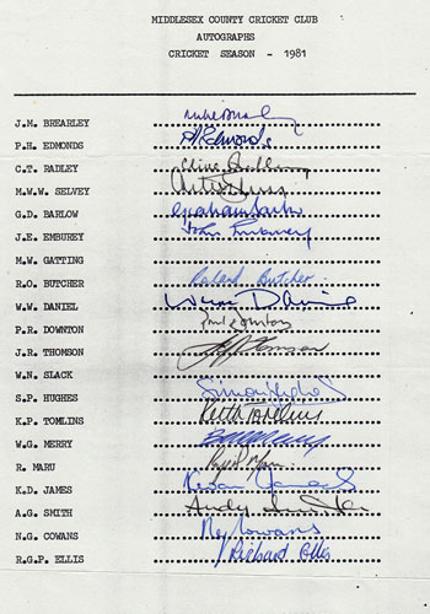 MIDDLESEX COUNTY CRICKET CLUB
AUTOGRAPHS
CRICKET SEASON - 1981
J.M. BREARLEY Mike Brearley
P.H. EDMONDS P Edmonds
C.T. RADLEY Clive Radley
M.W.W. SELVEY
G.D. BARLOW Graham Barlow
J.E. EMBUREY John Emburey
M.W. GATTING
R.O. BUTCHER Roland Butcher
W.W. DANIEL Wayne Daniel
P.R. DOWNTON Paul Downton
J.R. THOMSON J R Thomson
W.N. SLACK
S.P. HUGHES Simon Hughes
K.P. TOMLINS Keith Tomlins
W.G. MERRY
R. MARU
K.D. JAMES Kevan James
A.G. SMITH Andy Smith
N.G. COWANS N G Cowans
R.G.P. ELLIS Richard Ellis